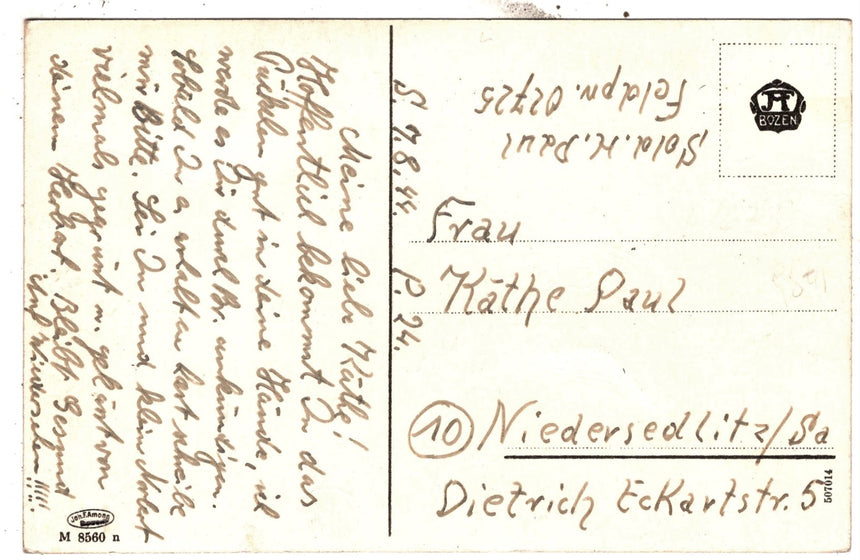 Meine liebe Käthe!
Hoffentlich bekommst Du das
Päckchen gut in deine Hände, ich
werde es Dir durch Br. ankündigen.
Sobald Du es erhalten hast schreibe
mir Bitte. Sei Du und klein
vielmals gegrüsst u. geküsst von
deinem Herbert. Bleibt Gesund
Auf Wiedersehen !!!!
S. 7.8.44. P. 24.
Sold. H. Paul
Feldpn. 02725
JFA
BOZEN
Frau
Käthe Paul
10 Niedersedlitz/Sa
Dietrich Eckartstr. 5
507014
Joh. F. Amonn
Bozen
M 8560 n